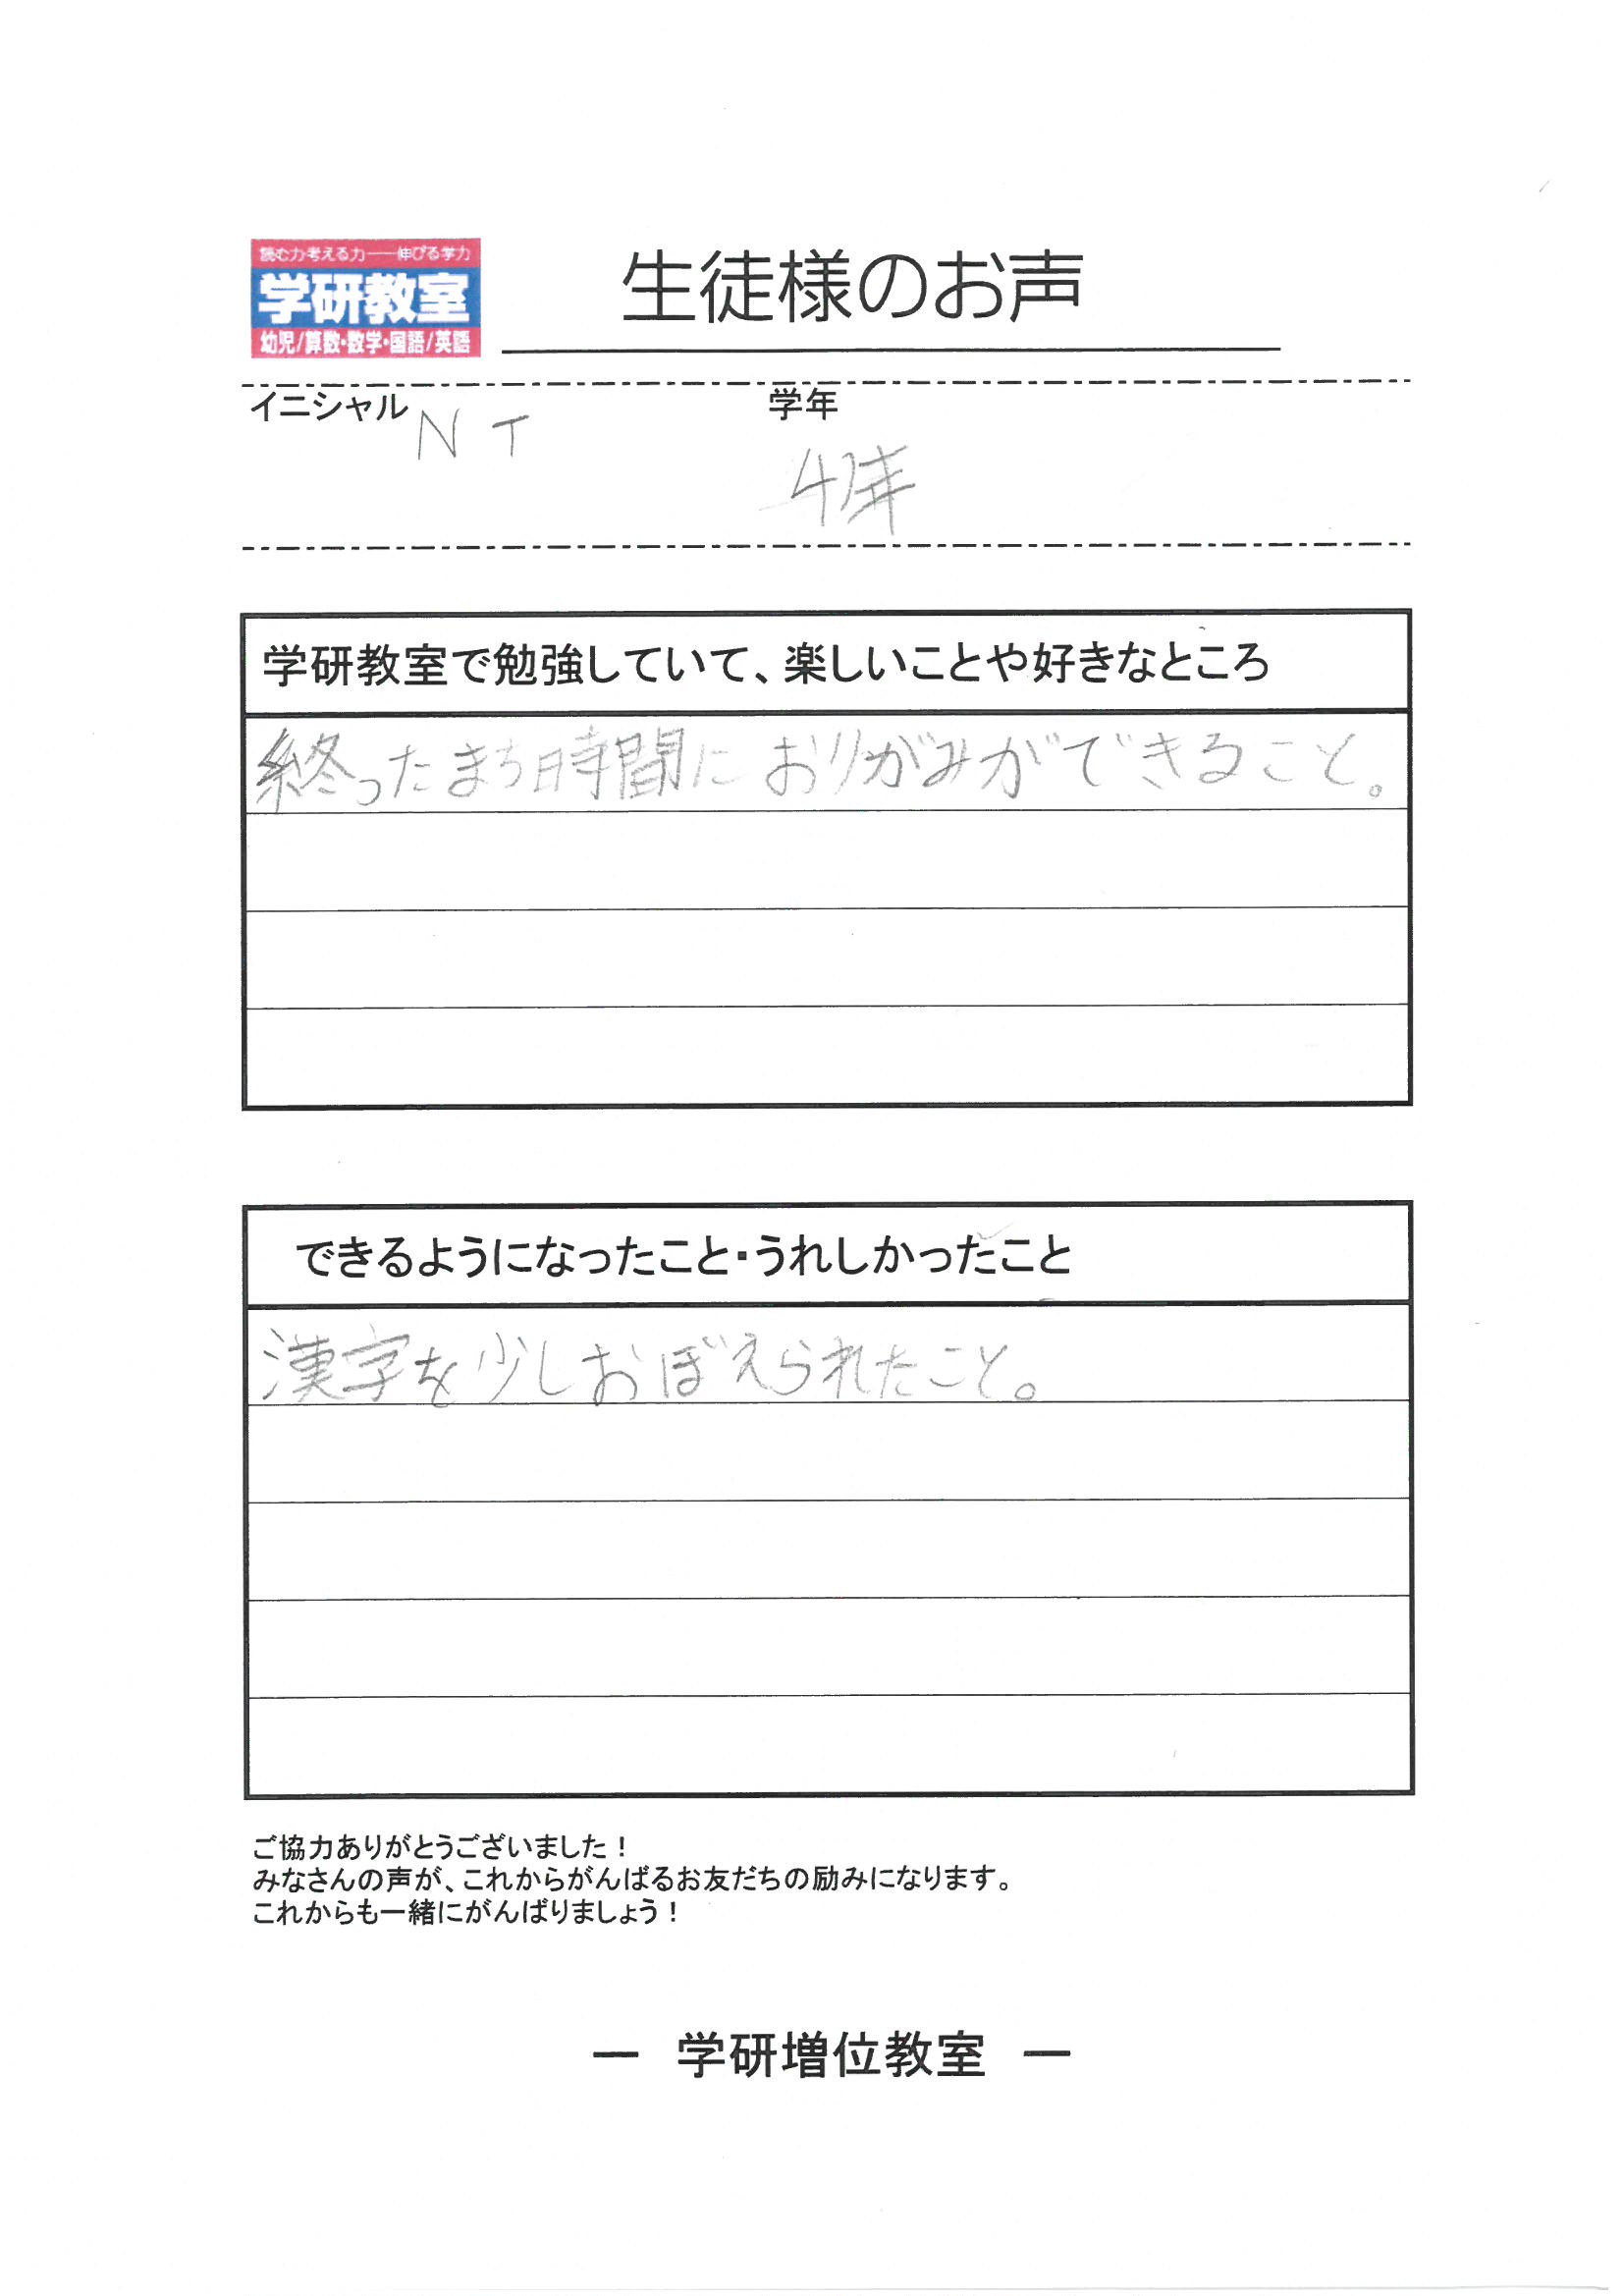 読む力考える力――伸びる学力
学研教室
幼児/算数・数学・国語/英語
生徒様のお声
イニシャル NT 学年
4年
学研教室で勉強していて、楽しいことや好きなところ
終ったまち時間におりがみができること。
できるようになったこと・うれしかったこと
漢字を少しおぼえられたこと。
ご協力ありがとうございました！
みなさんの声が、これからがんばるお友だちの励みになります。
これからも一緒にがんばりましょう！
― 学研増位教室 ―